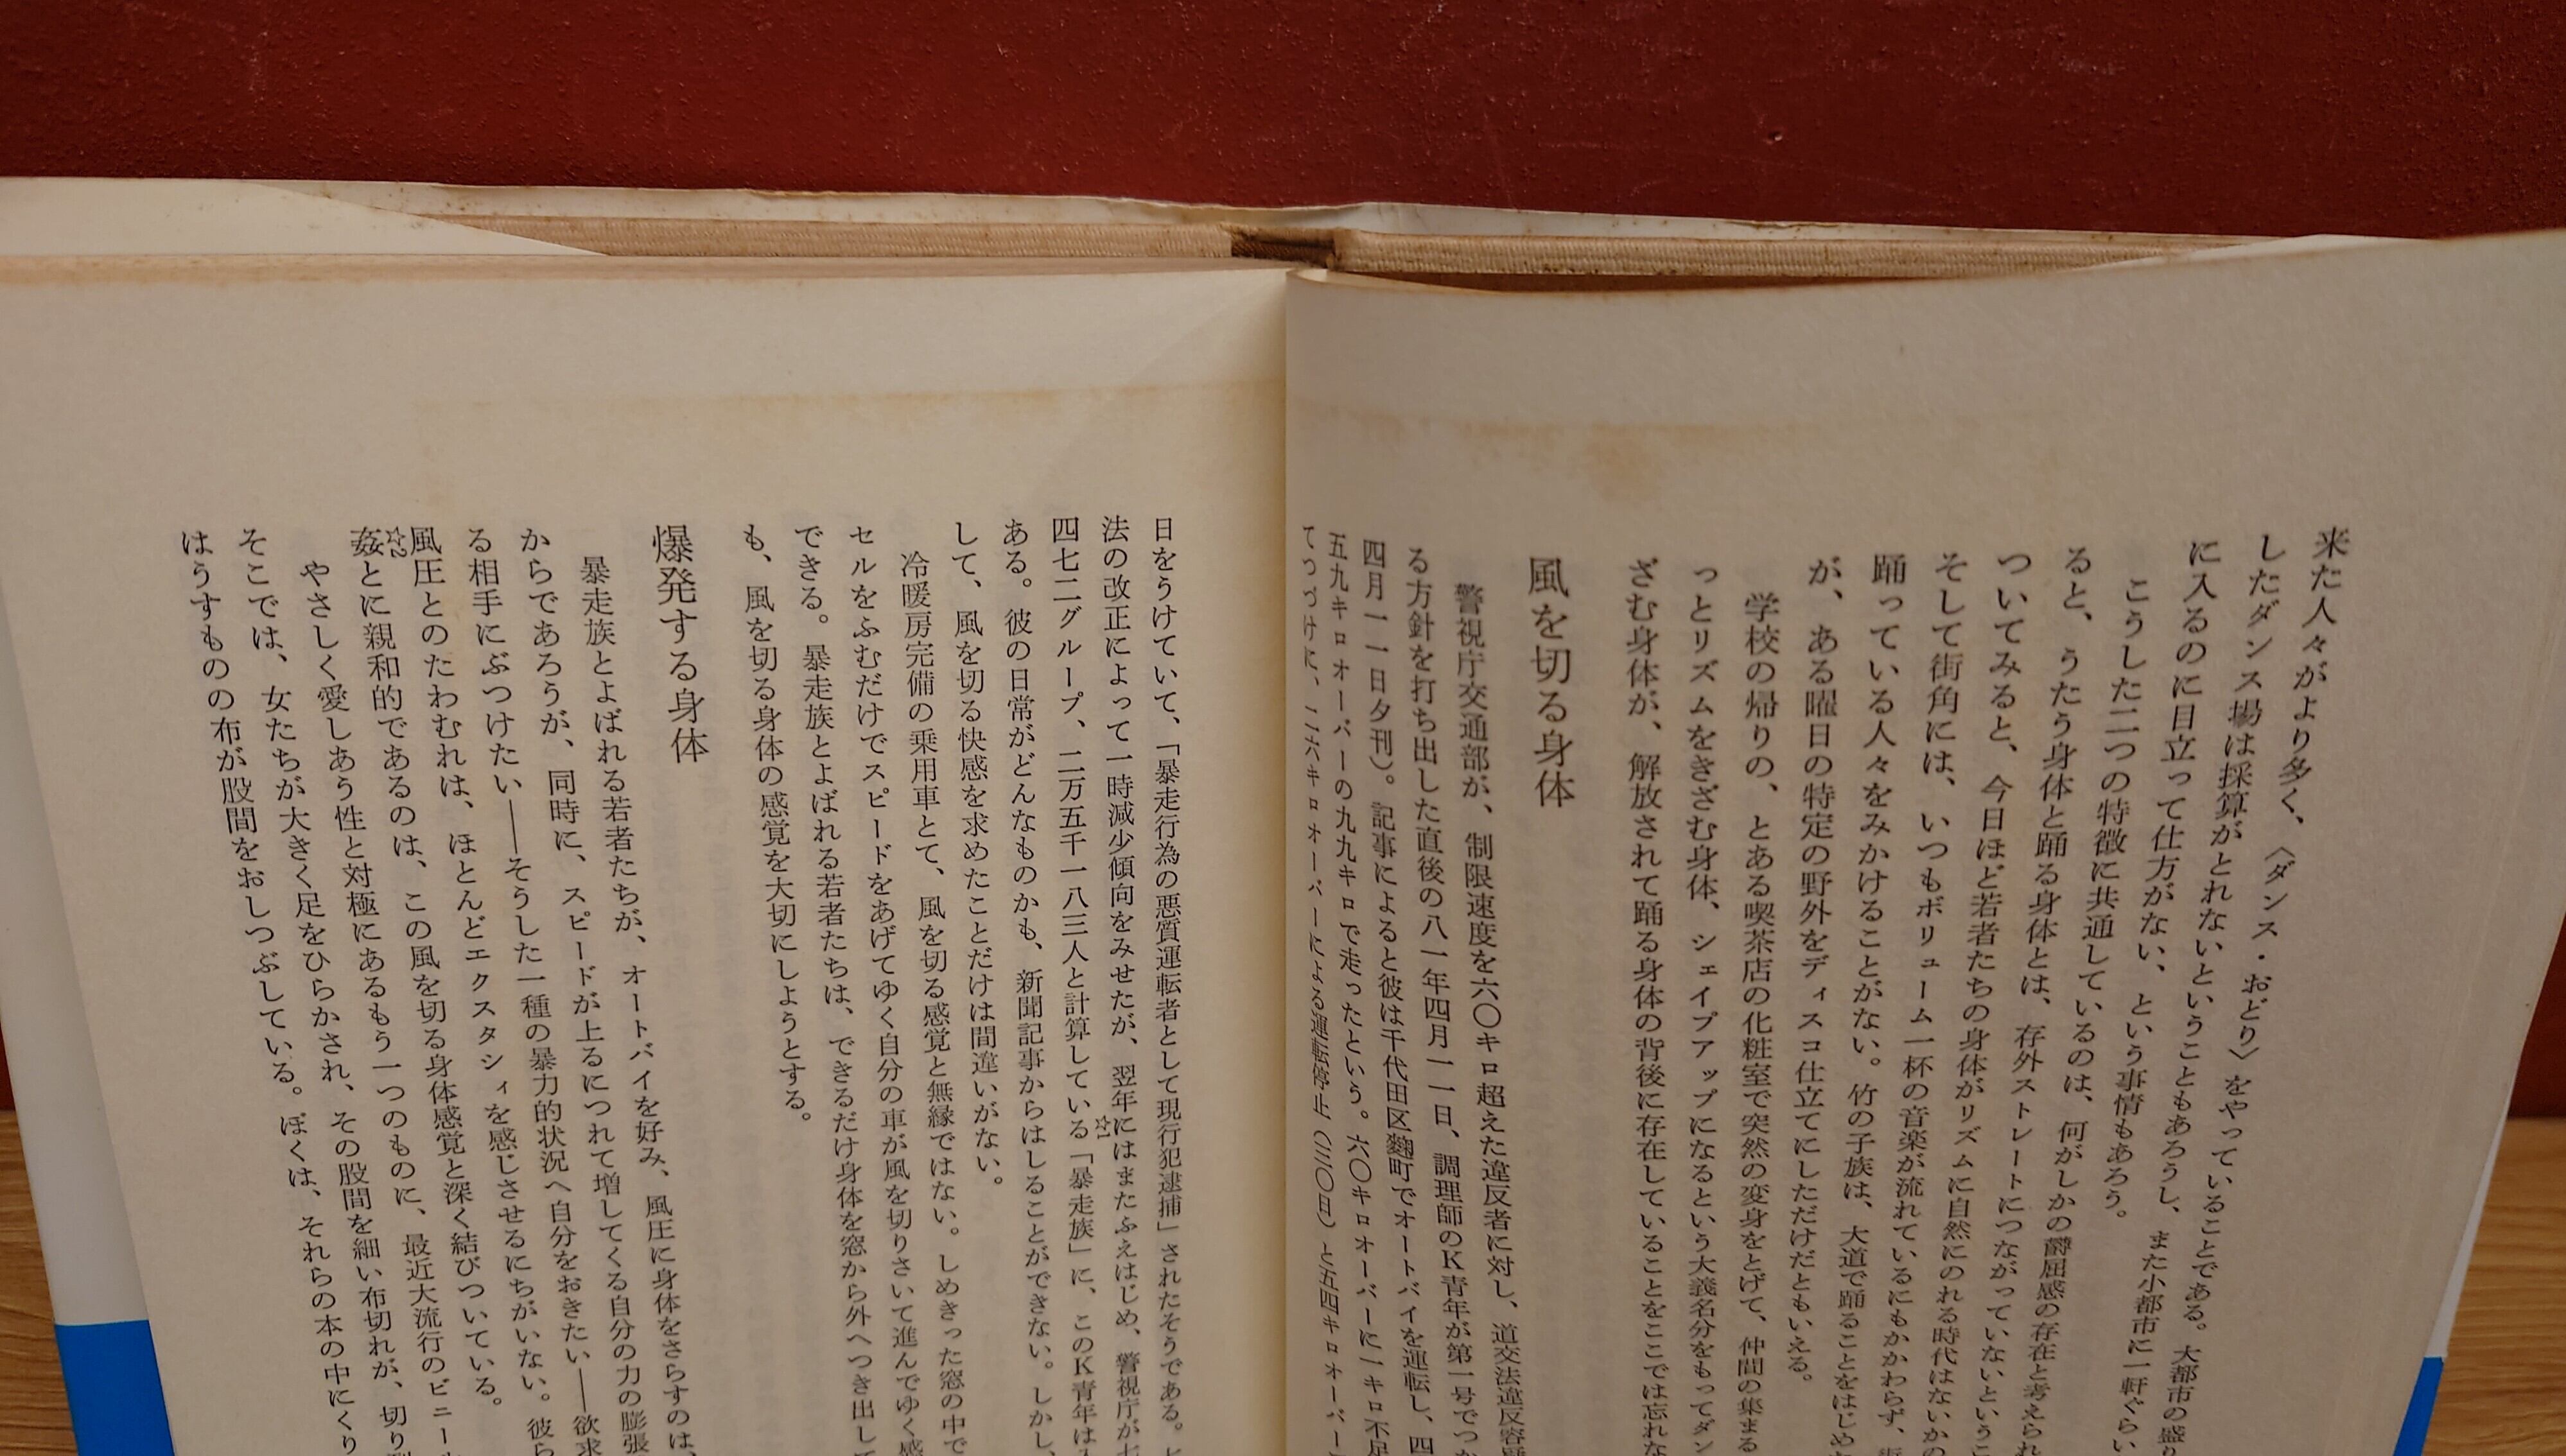 来た人々がより多く、〈ダンス・おどり〉をやっていることである。大都市の盛り
したダンス場は採算がとれないということもあろうし、また小都市に一軒ぐらい
に入るのに目立って仕方がない、という事情もあろう。
こうした二つの特徴に共通しているのは、何がしかの欝屈感の存在と考えられ
ると、うたう身体と踊る身体とは、存外ストレートにつながっていないというこ
ついてみると、今日ほど若者たちの身体がリズムに自然にのれる時代はないかの
そして街角には、いつもボリューム一杯の音楽が流れているにもかかわらず、街
踊っている人々をみかけることがない。竹の子族は、大道で踊ることをはじめた
が、ある曜日の特定の野外をディスコ仕立てにしただけだともいえる。
学校の帰りの、とある喫茶店の化粧室で突然の変身をとげて、仲間の集まる
っとリズムをきざむ身体、シェイプアップになるという大義名分をもってダン
ざむ身体が、解放されて踊る身体の背後に存在していることをここでは忘れな
風を切る身体
警視庁交通部が、制限速度を六〇キロ超えた違反者に対し、道交法違反容疑
る方針を打ち出した直後の八一年四月一一日、調理師のK青年が第一号でつか
四月一一日夕刊)。記事によると彼は千代田区麹町でオートバイを運転し、四
五九キロオーバーの九九キロで走ったという。六〇キロオーバーに一キロ不足
てつづけに、二六キロオーバーによる運転停止(三〇日)と五四キロオーバー
日をうけていて、「暴走行為の悪質運転者として現行犯逮捕」されたそうである。
法の改正によって一時減少傾向をみせたが、翌年にはまたふえはじめ、警視庁が七
四七二グループ、二万五千一八三人と計算している☆1「暴走族」に、このK青年は入
ある。彼の日常がどんなものかも、新聞記事からはしることができない。しかし、
して、風を切る快感を求めたことだけは間違いがない。
冷暖房完備の乗用車とて、風を切る感覚と無縁ではない。しめきった窓の中で
セルをふむだけでスピードをあげてゆく自分の車が風を切りさいて進んでゆく感
できる。暴走族とよばれる若者たちは、できるだけ身体を窓から外へつき出して
も、風を切る身体の感覚を大切にしようとする。
爆発する身体
暴走族とよばれる若者たちが、オートバイを好み、風圧に身体をさらすのは、
からであろうが、同時に、スピードが上るにつれて増してくる自分の力の膨張
る相手にぶつけたい——そうした一種の暴力的状況へ自分をおきたい——欲求
風圧とのたわむれは、ほとんどエクスタシィを感じさせるにちがいない。彼ら
姦☆2とに親和的であるのは、この風を切る身体感覚と深く結びついている。
やさしく愛しあう性と対極にあるもう一つのものに、最近大流行のビニール
そこでは、女たちが大きく足をひらかされ、その股間を細い布切れが、切り裂
はうすものの布が股間をおしつぶしている。ぼくは、それらの本の中にくり